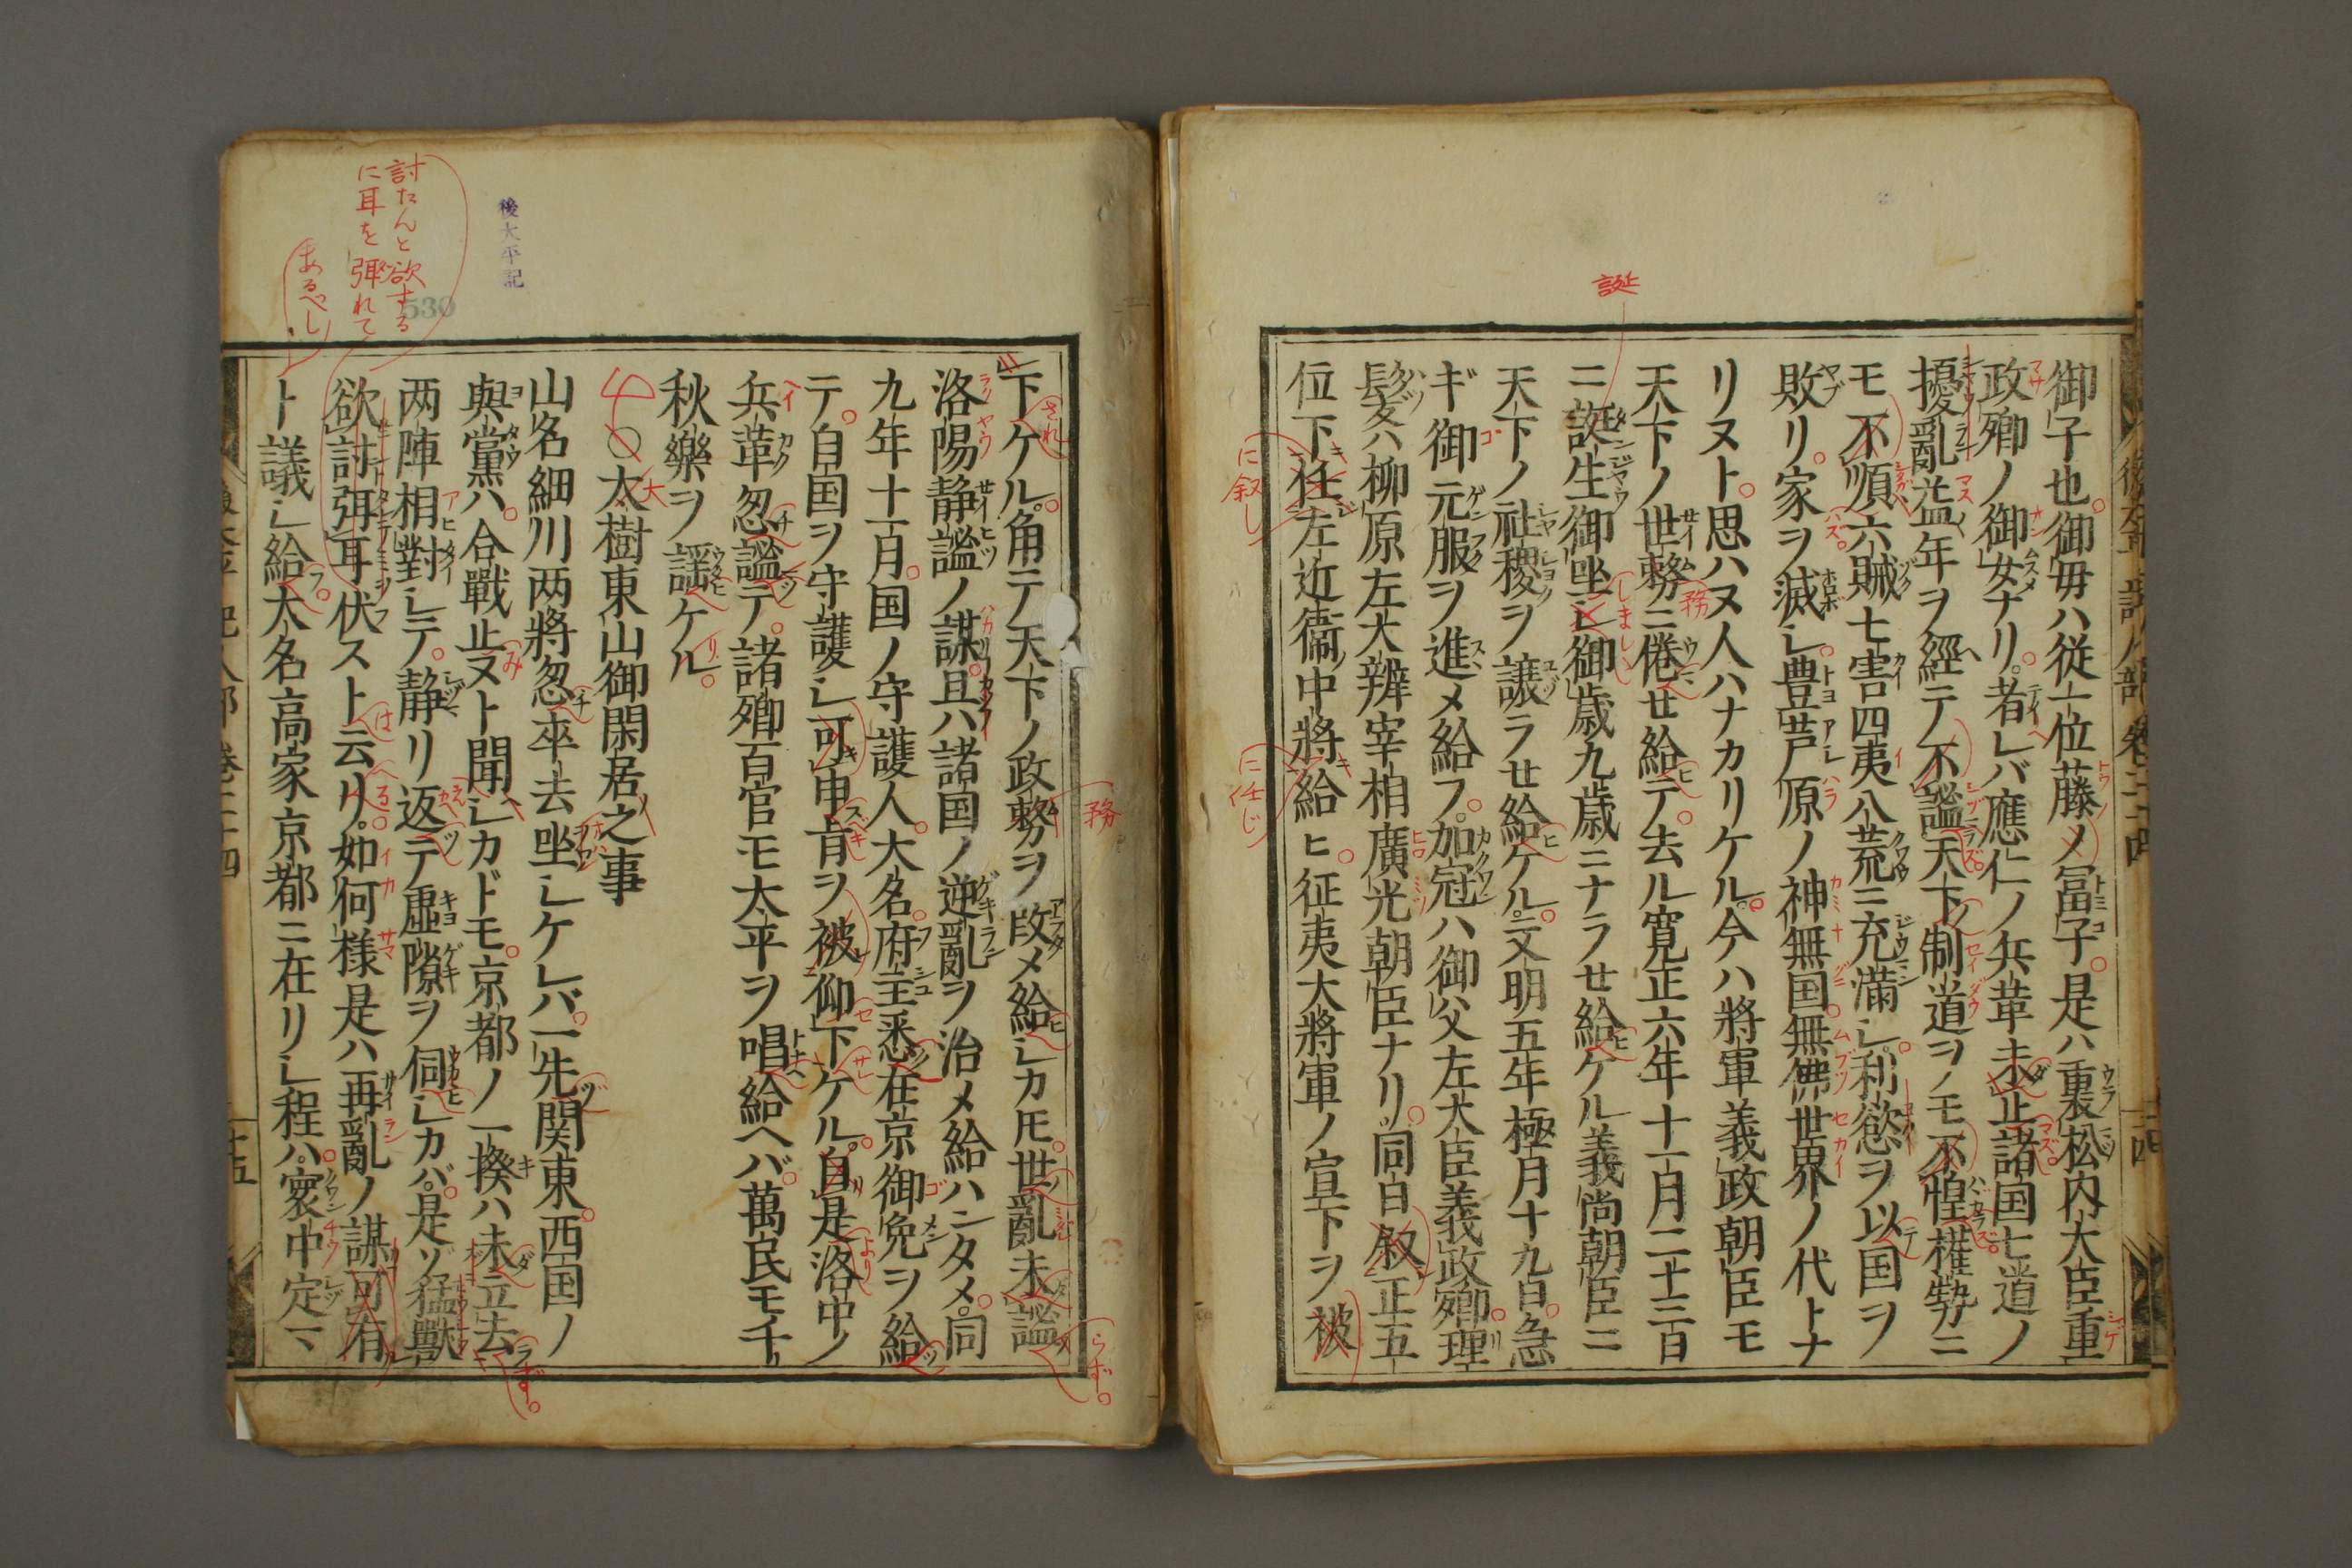 誕
御子也御母ハ従一位藤ノ冨子是ハ裏松内大臣重
政卿ノ御女ナリ者レバ應仁ノ兵革未止諸国七道ノ
擾亂益年ヲ經テ不謐天下ノ制道ヲノモ不惶權勢ニ
モ不順六賊七害四夷八荒ニ充滿乄利慾ヲ以国ヲ
敗リ家ヲ滅乄豊芦原ノ神無国無佛世界ノ代トナ
リヌト思ハヌ人ハナカリケル今ハ將軍義政朝臣モ
天下ノ世務ニ倦セ給テ去ル寛正六年十一月二十三日
ニ誕生御坐乄御歳九歳ニナラセ給ケル義尚朝臣ニ
天下ノ社稷ヲ譲ラセ給ケル文明五年極月十九日急
ギ御元服ヲ進メ給フ加冠ハ御父左大臣義政卿理
髪ハ柳原左大辨宰相廣光朝臣ナリ同日叙正五
位下任左近衞中將給ヒ征夷大將軍ノ宣下ヲ被
に叙し
に任じ
務
下ケル角テ天下ノ政務ヲ改メ給乄カ𪜈世亂未謐
洛陽静謐ノ謀且ハ諸国ノ逆亂ヲ治メ給ハンタメ同
九年十一月国ノ守護人大名府主悉在京御免ヲ給
テ自国ヲ守護乄可申肯ヲ被仰下ケル自是洛中ノ
兵革忽謐テ諸卿百官モ太平ヲ唱給ヘバ萬民モ千
秋樂ヲ謡ケル
○太樹東山御閑居之事
山名細川两將忽卒去坐乄ケレバ一先関東西国ノ
與黨ハ合戰止ヌト聞乄カドモ京都ノ一揆ハ未立去
两陣相對乄テ静リ返テ虚隙ヲ伺乄カバ是ゾ猛獸
欲討弭耳伏スト云リ如何様是ハ再亂ノ謀可有
ト議乄給大名高家京都ニ在リ乄程ハ寰中定マ
後太平記
討たんと欲する
に耳を弭れて
あるべし
530